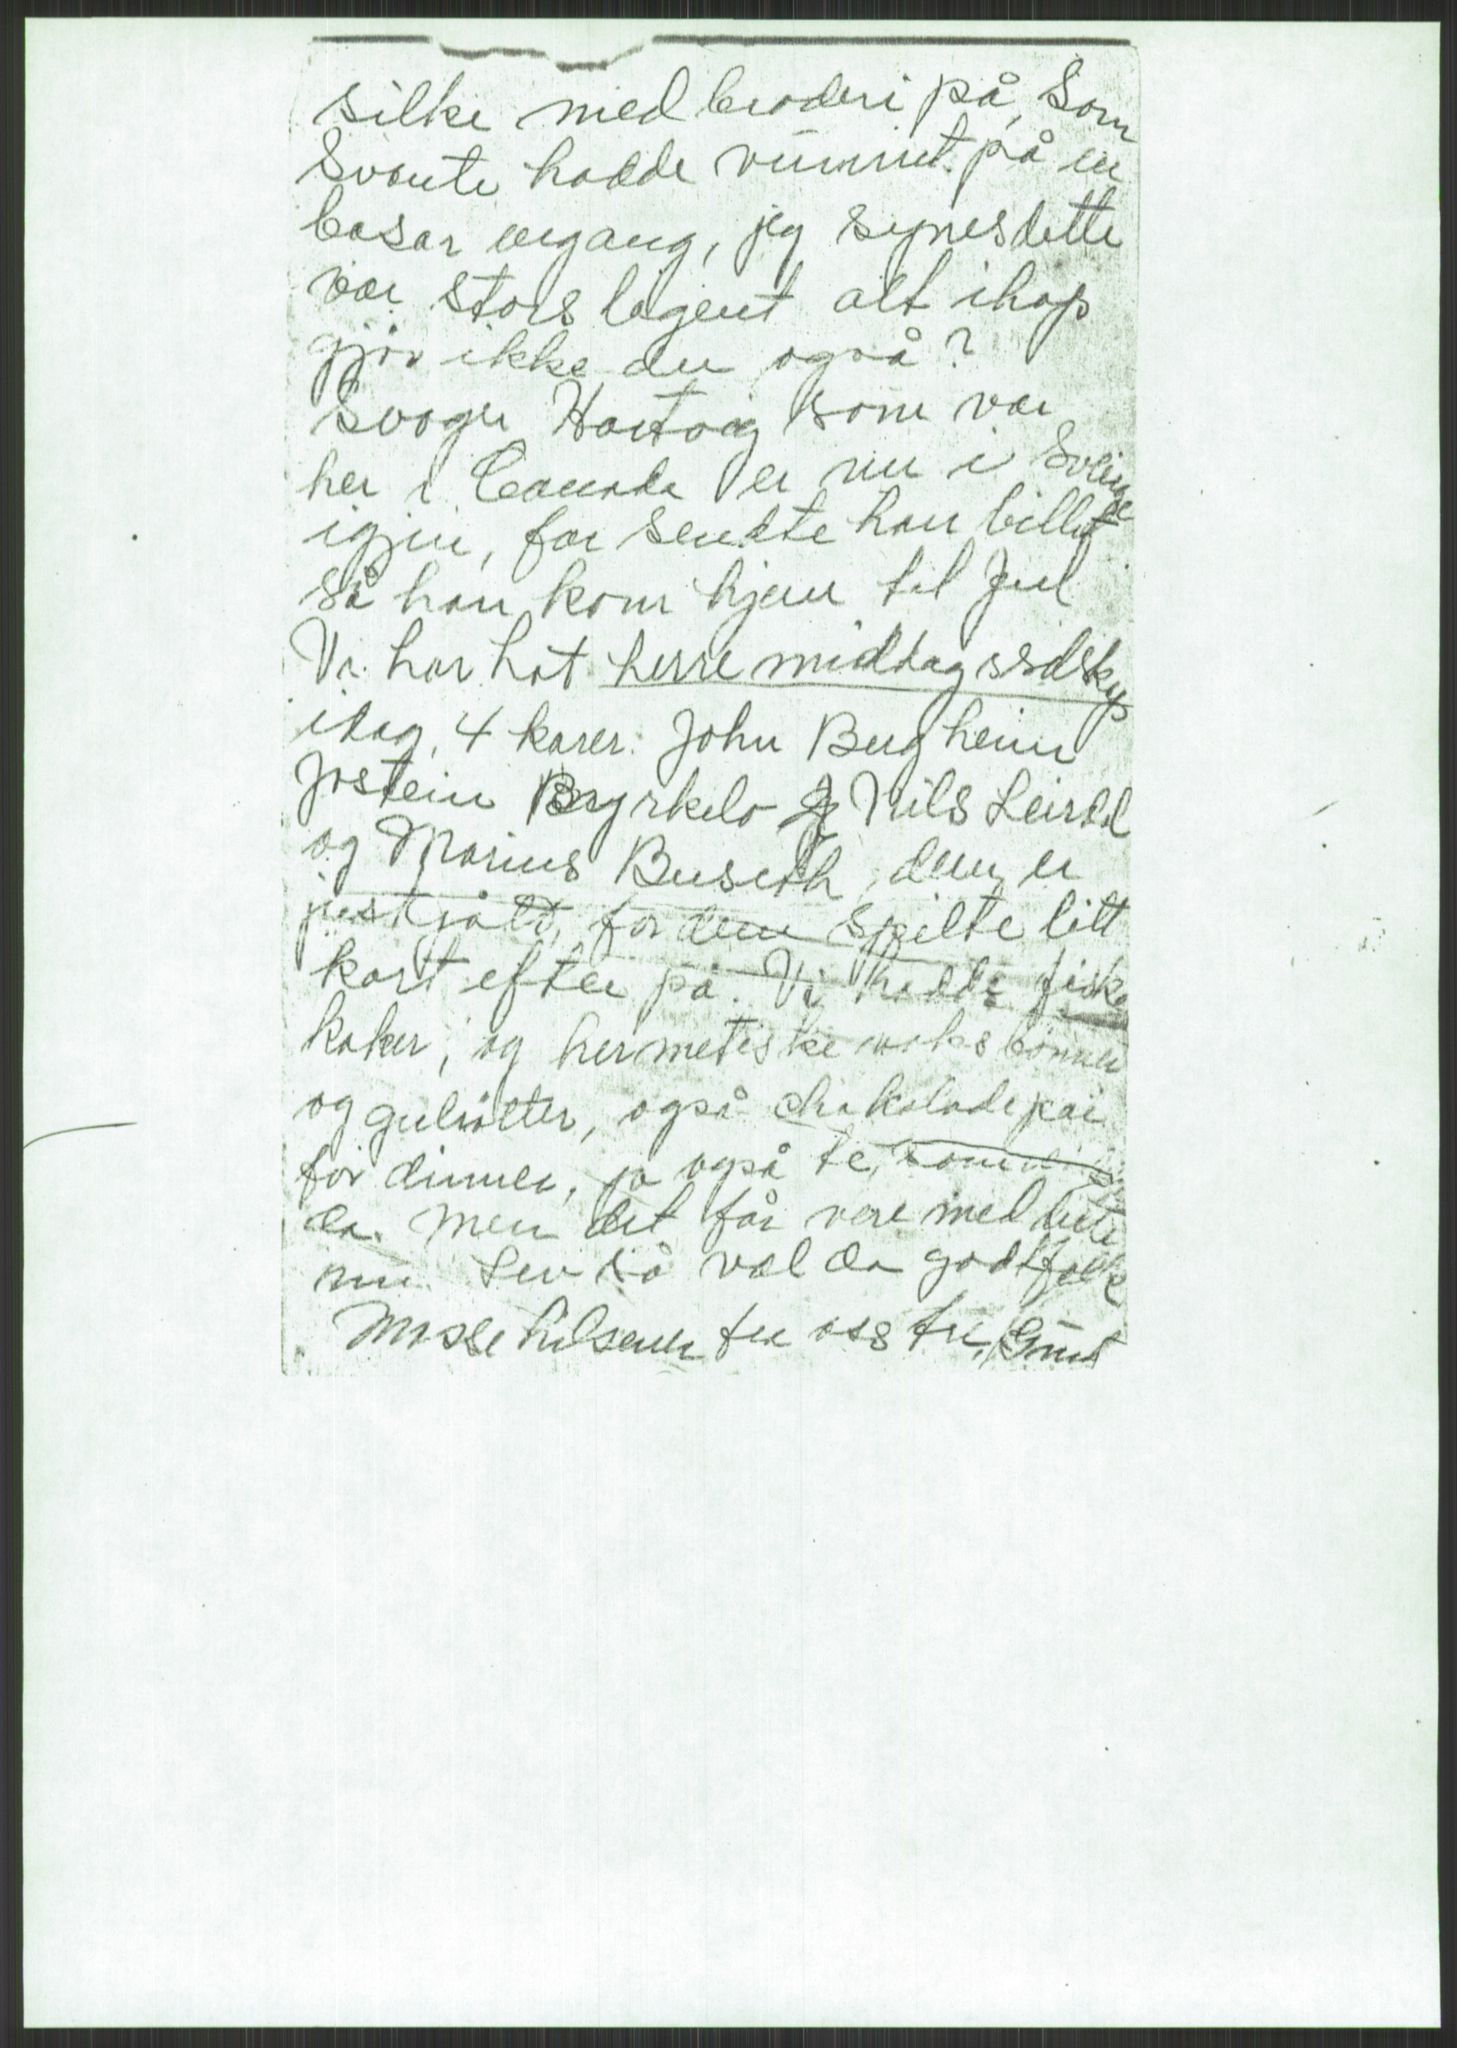 silke med broderi på, som
Svante hadde vunnet på en
basar engang, jeg synes dette
var storslagent alt ihop
gjør ikke du også?
Svoger Hartvig som var
her i Canada er nu i Sverige
igjen, far sendte han billet
så han kom hjem til Jul
Vi har hat herremiddagsselskap
idag, 4 karer. John Bergheim
Jostein Byrkelo Nils Leirdal
og Marius Buseth, dem er
just gått, for dem spilte litt
kort efter på. Vi hadde fiske
kaker, og hermetiske voksbønner
og gulrøtter, også chokoladepai
for dinner, ja også te,
da. Men det får vere med dette
nu. Lev så vel da godtfolk
Masse hilsener fra oss tre,